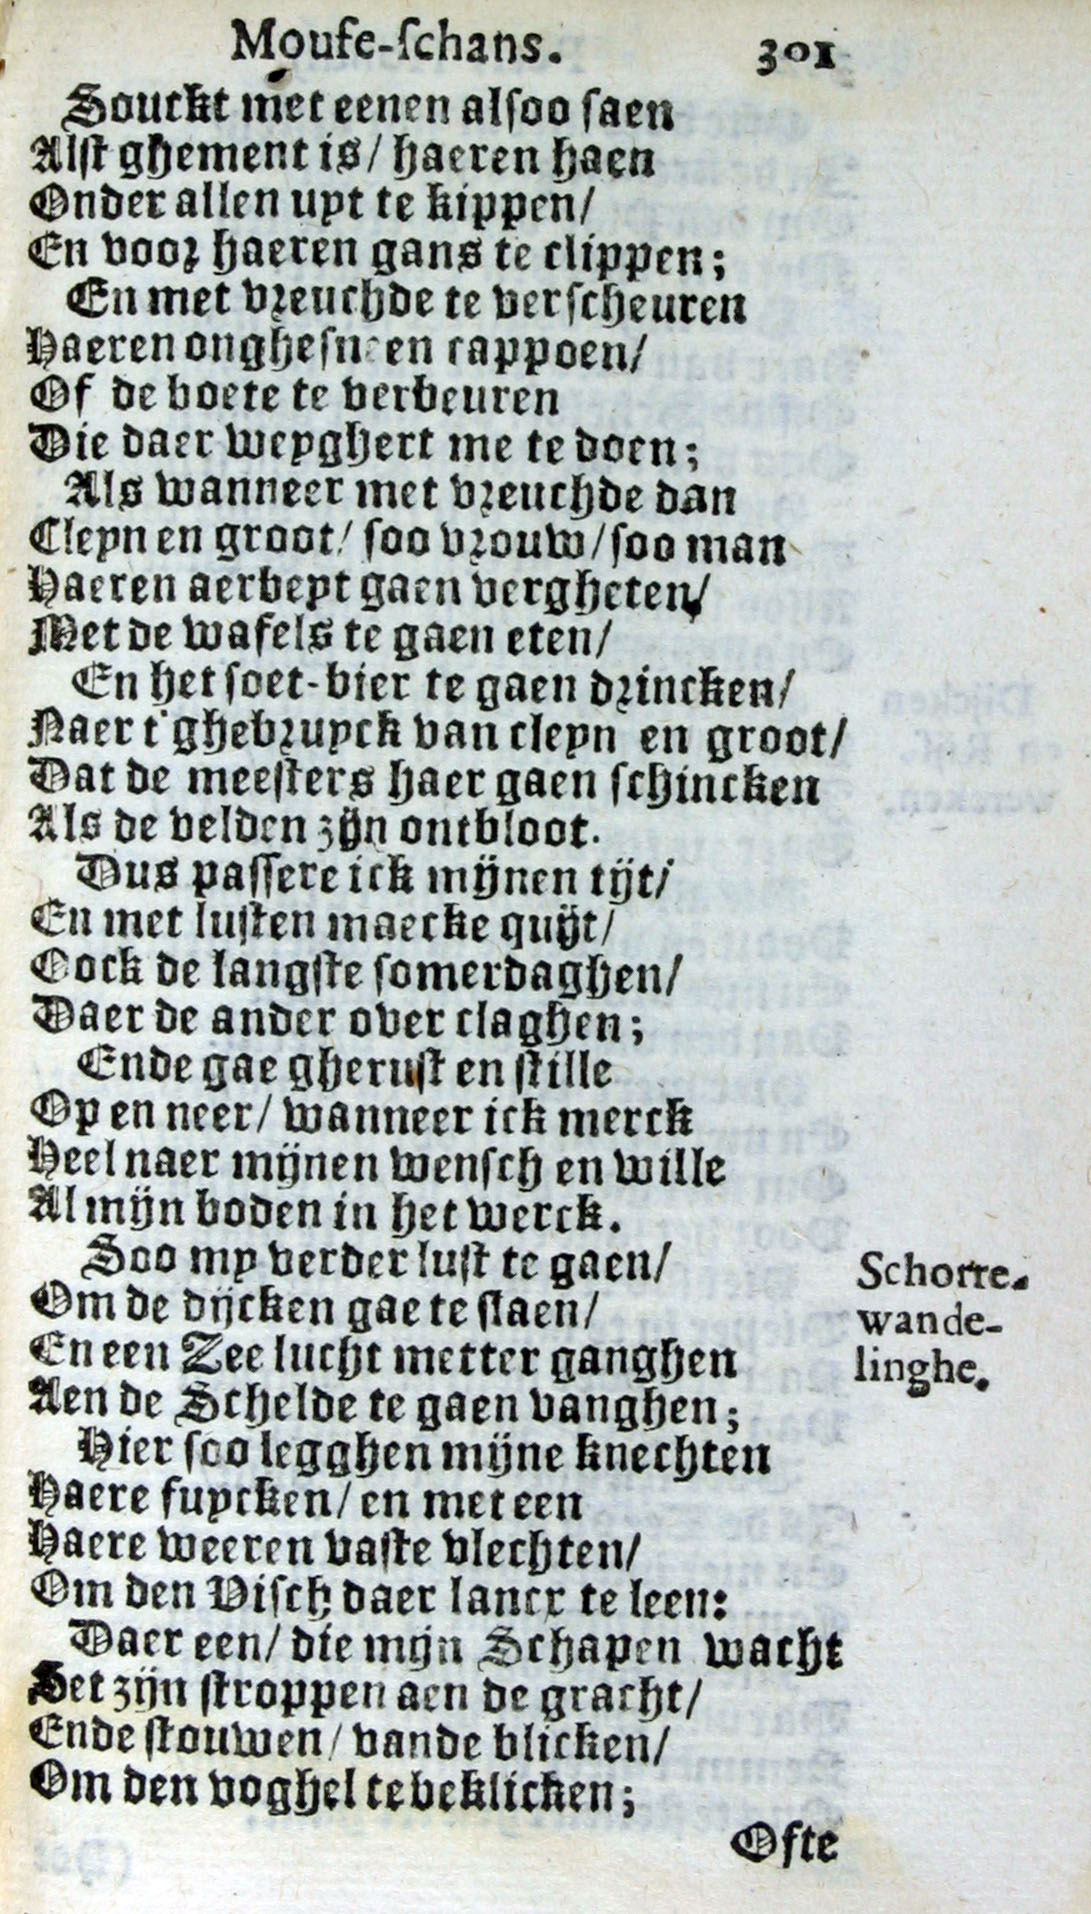 Moufe-ſchans. 301
Souckt met eenen alſoo ſaen
Alſt ghement is/ haeren haen
Onder allen uyt te kippen/
En voor haeren gans te clippen;
En met vreuchde te verſcheuren
Haeren onghesneen cappoen/
Of de boete te verbeuren
Die daer weyghert me te doen;
Als wanneer met vreuchde dan
Cleyn en groot/ ſoo vrouw/ſoo man
Haeren aerbeyt gaen vergheten/
Met de wafels te gaen eten/
En het ſoet-bier te gaen drincken/
Naer t'ghebruyck van cleyn en groot/
Dat de meeſters haer gaen ſchincken
Als de velden zijn ontbloot.
Dus paſſere ick mijnen tijt/
En met luſten maecke quijt/
Oock de langſte ſomerdaghen/
Daer de ander over claghen;
Ende gae gheruſt en ſtille
Op en neer/ wanneer ick merck
Heel naer mijnen wenſch en wille
Al mijn boden in het werck.
Soo my verder luſt te gaen/
Om de dijcken gae te ſlaen/
En een Zee lucht metter ganghen
Aen de Schelde te gaen vanghen;
Hier ſoo legghen mijne knechten
Haere fuycken/ en met een
Haere weeren vaſte vlechten/
Om den Viſch daer lancx te leen:
Daer een/ die mijn Schapen wacht
Set zijn ſtroppen aen de gracht/
Ende ſtouwen/ vande blicken/
Om den voghel te beklicken;
Schorre-
wande-
linghe.
Ofte